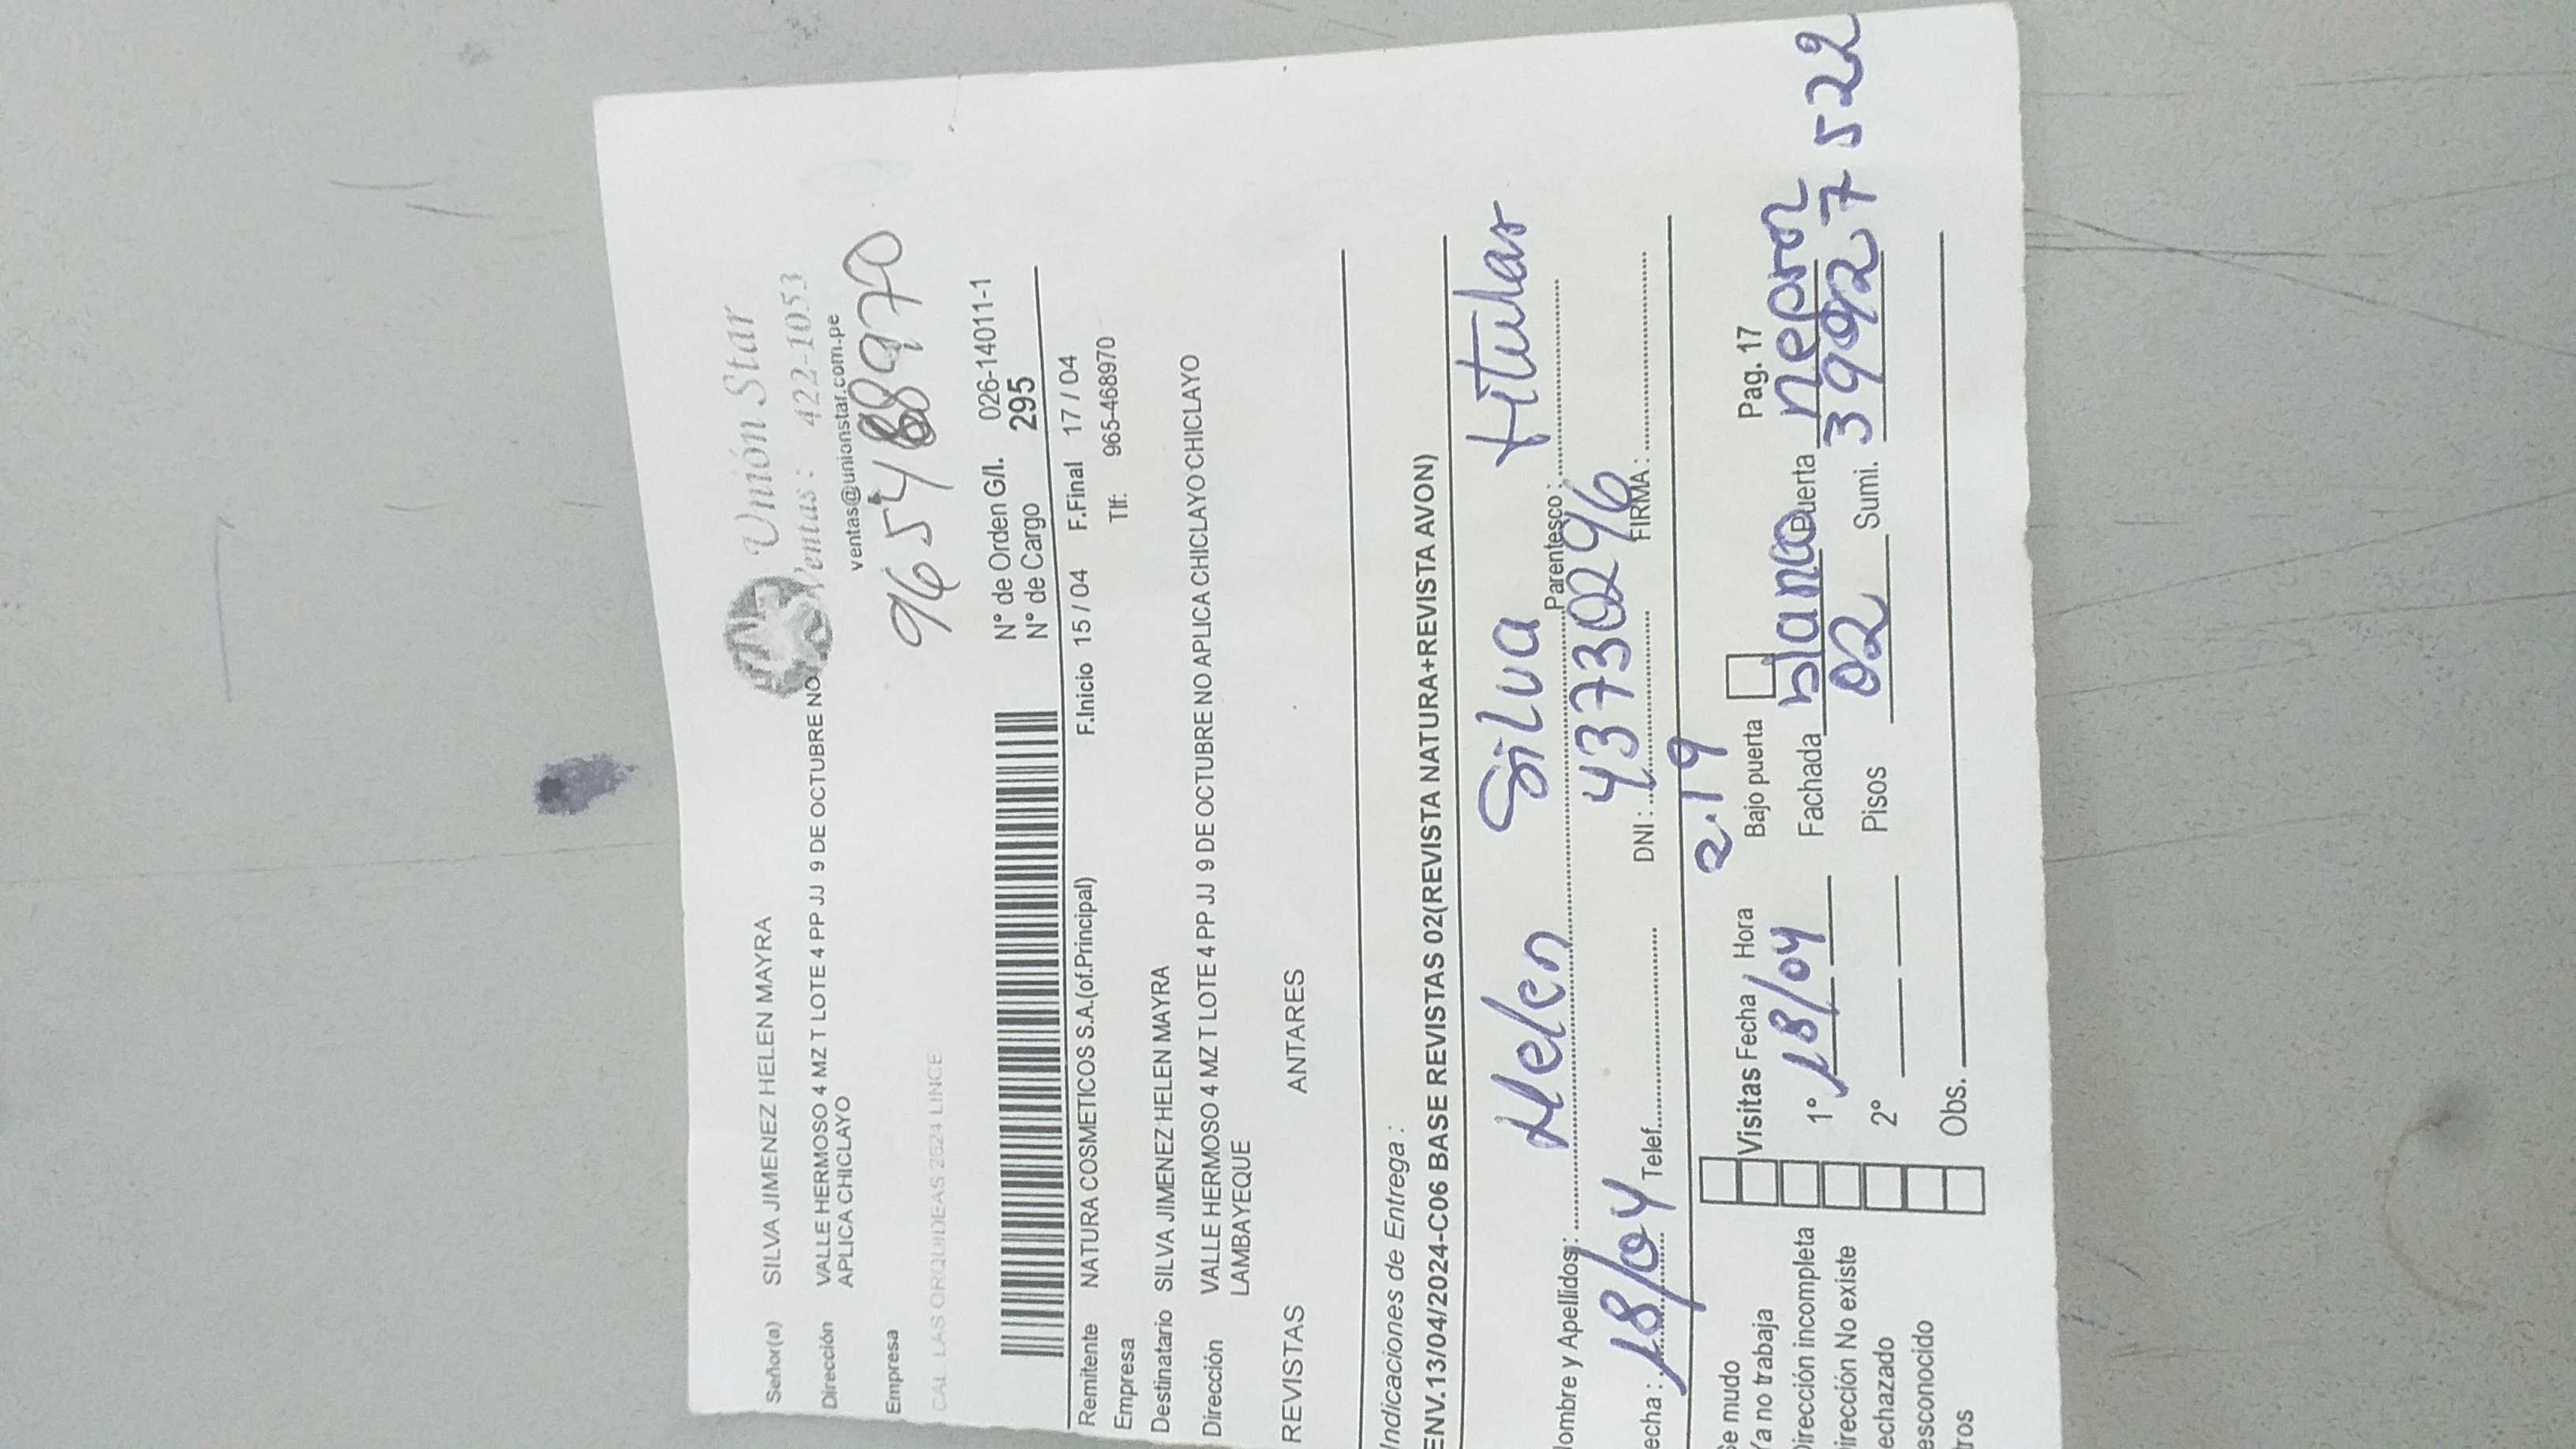 Unión Star
Ventas: 422-1053
ventas@unionstar.com.pe
Señor(a) SILVA JIMENEZ HELEN MAYRA
Dirección VALLE HERMOSO 4 MZ T LOTE 4 PP JJ 9 DE OCTUBRE NO
APLICA CHICLAYO
Empresa
CAL. LAS ORQUIDEAS 2624 LINCE
N° de Orden G/I. 026-14011-1
N° de Cargo 295
Remitente NATURA COSMETICOS S.A.(of.Principal) F.Inicio 15 / 04 F.Final 17 / 04
Empresa Tlf: 965-468970
Destinatario SILVA JIMENEZ HELEN MAYRA
Dirección VALLE HERMOSO 4 MZ T LOTE 4 PP JJ 9 DE OCTUBRE NO APLICA CHICLAYO CHICLAYO
LAMBAYEQUE
REVISTAS ANTARES
Indicaciones de Entrega :
ENV.13/04/2024-C06 BASE REVISTAS 02(REVISTA NATURA+REVISTA AVON)
Helen Silva titular
ombre y Apellidos: Parentesco :
18/04 43730296
echa : Telef. DNI : FIRMA :
2.19
Se mudo
Ya no trabaja Visitas Fecha / Hora Bajo puerta Pag. 17
Dirección incompleta 1° 18/04 Fachada blanco Puerta negro
Dirección No existe
echazado 2° Pisos 02 Sumi. 39927522
esconocido
tros Obs.